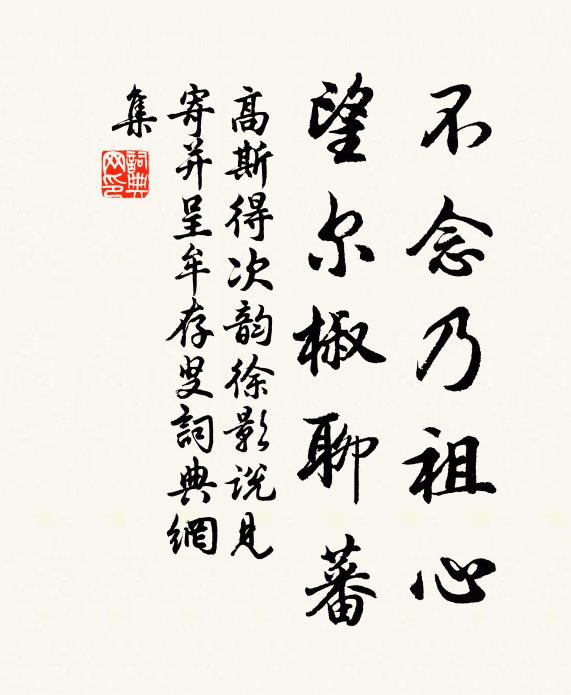 不念乃祖心
望尔椒聊蕃
高斯得次韵徐影说见
寄并呈牟存叟詞典網
集
詞典
网印